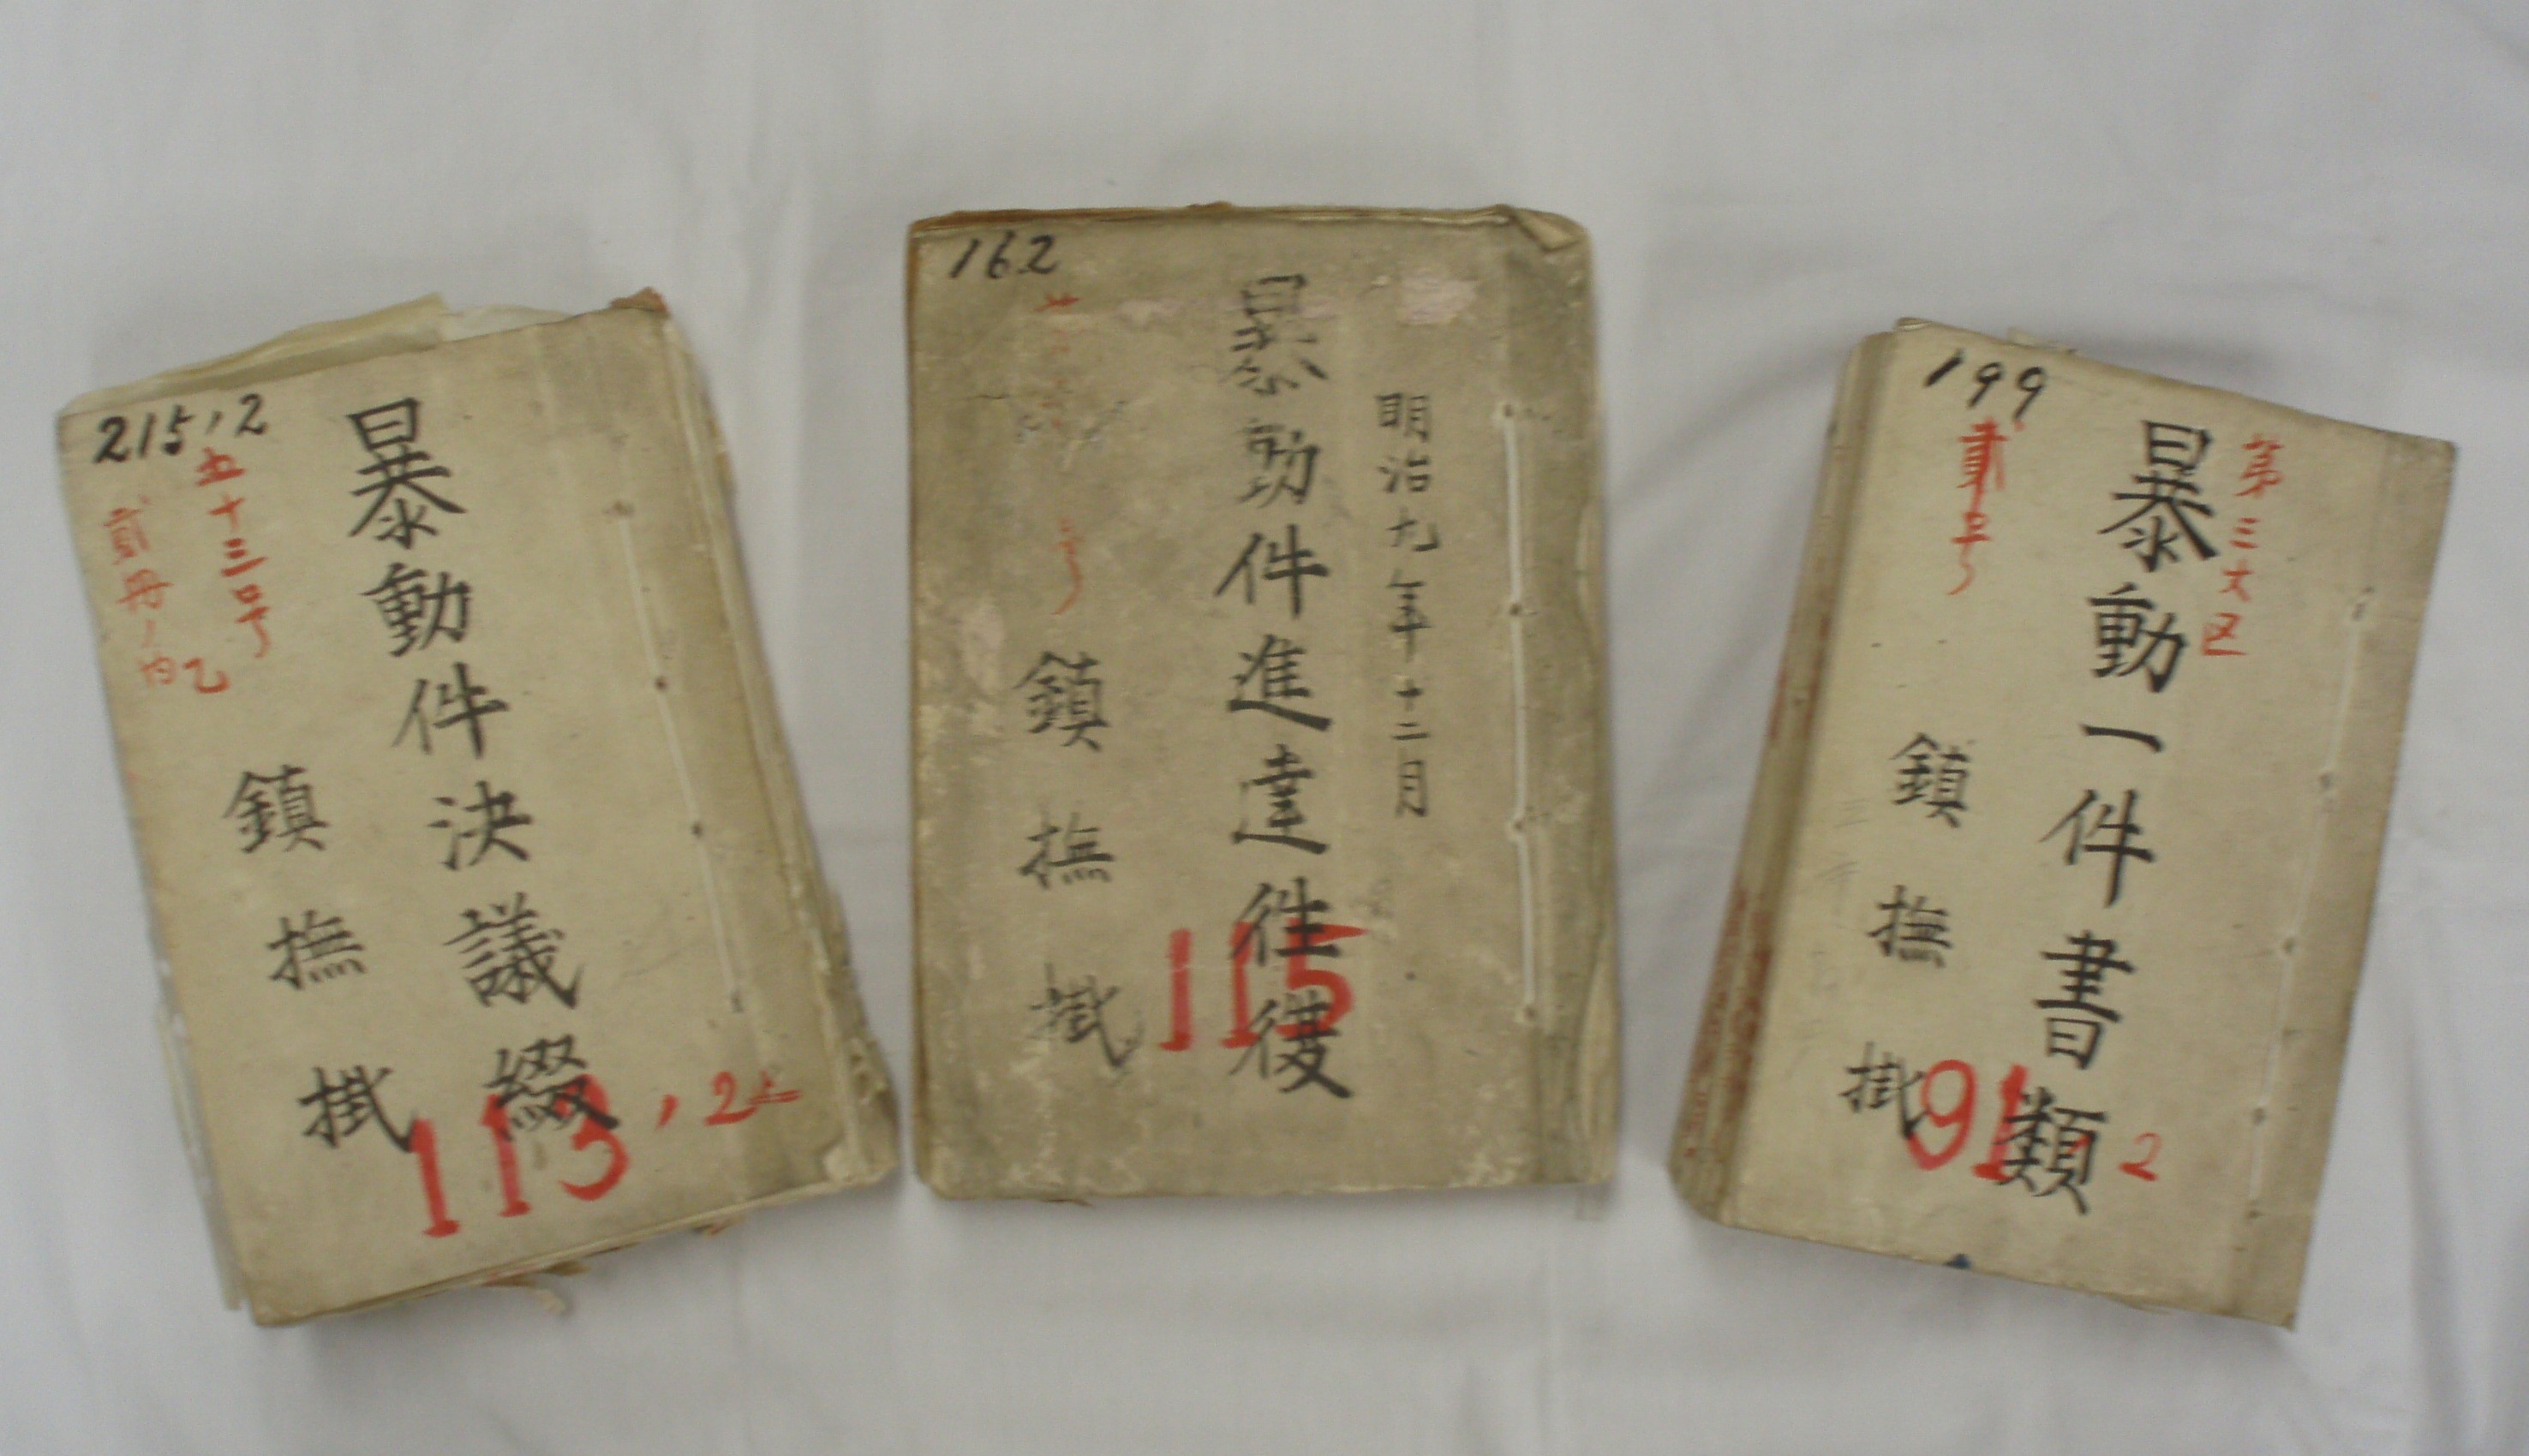 215,2
暴動件決議綴
五十三号
貳冊ノ内乙
鎮撫掛
113,2
162
明治九年十二月
暴動件進達往復
号
鎮撫掛
115
199
第三大区
暴動一件書類
貳号
鎮撫掛
91
2